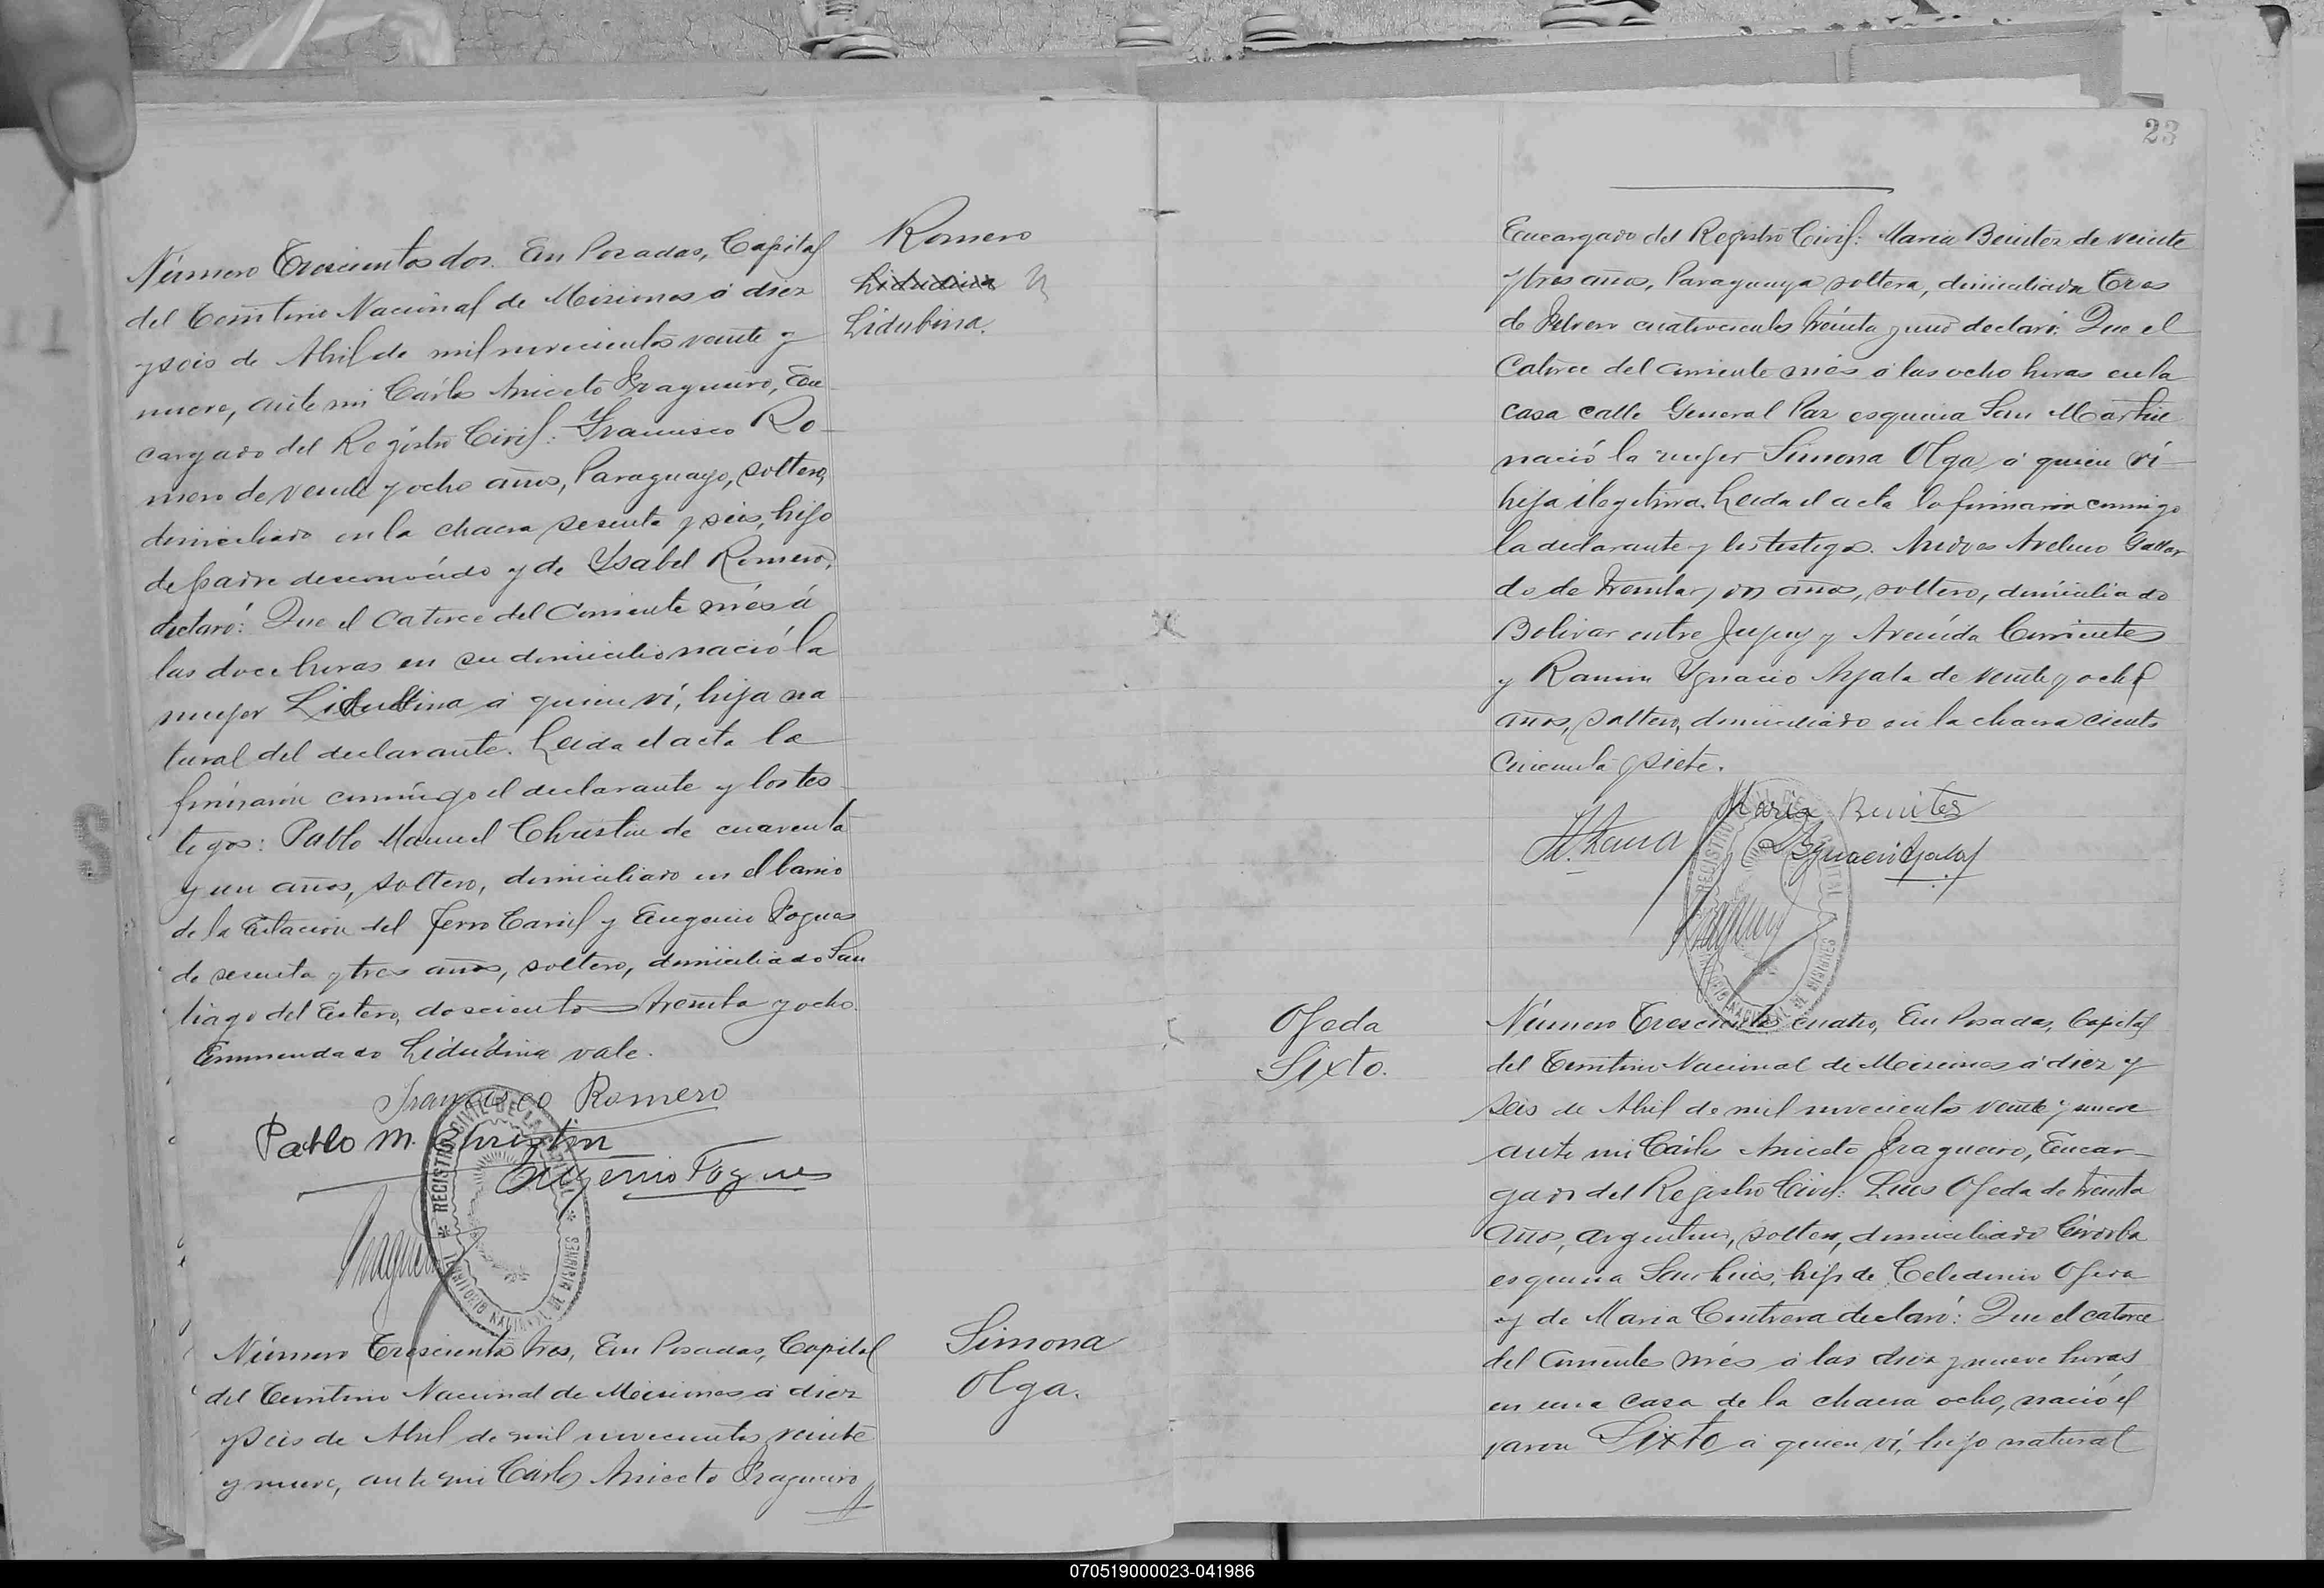 Número Trescientos dos. En Posadas, Capital
del Territorio Nacional de Misiones á diez
y seis de Abril de mil novecientos veinte y
nueve, ante mi Cárlos Aniceto Fragueiro, En
cargado del Registro Civil: Francisco Ro-
mero de veinte y ocho años, Paraguayo, soltero,
domiciliado en la chacra sesenta y seis, hijo
de padre desconocido y de Ysabel Romero,
declaró: Que el catorce del corriente més á
las doce horas en su domicilio nació la
mujer Lidubina á quien ví, hija na
tural del declarante. Leida el acta la
firmaron conmigo el declarante y los tes
tigos: Pablo Manuel Christin de cuarenta
y un años, soltero, domiciliado en el barrio
de la Estacion del Ferro Carril y Eugenio Pogues
de sesenta y tres años, soltero, domiciliado San
tiago del Estero, doscientos treinta y ocho.
Enmendado Lidubina vale.
Francisco Romero
Pablo M. Christin
Eugenio Pogues
Fragueiro
REGISTRO CIVIL DE LA CAPITAL
TERRITORIO NACIONAL DE MISIONES
Romero
Lidubina.
Número Trescientos tres, En Posadas, Capital
del Territorio Nacional de Misiones á diez
y seis de Abril de mil novecientos veinte
y nueve, ante mi Carlos Aniceto Fragueiro
Simona
Olga.
23
Encargado del Registro Civil: Maria Benitez de veinte
y tres años, Paraguaya soltera, domiciliada Tres
de Febrero cuatrocientos treinta y uno declaró: Que el
catorce del corriente més á las ocho horas en la
casa calle General Paz esquina San Martin
nació la mujer Simona Olga á quien ví
hija ilegitima. Leida el acta la firmaron conmigo
la declarante y los testigos. Andres Avelino Gallar
do de treinta y dos años, soltero, domiciliado
Bolivar entre Jujuy y Avenida Corrientes
y Ramon Ygnacio Ayala de veinte y ocho
años, soltero, domiciliado en la chacra ciento
cincuenta y siete.
Maria Benites
Ygnacio Ayala
Fragueiro
REGISTRO CIVIL DE LA CAPITAL
TERRITORIO NACIONAL DE MISIONES
Ojeda
Sixto.
Número Trescientos cuatro, En Posadas, Capital
del Territorio Nacional de Misiones á diez y
seis de Abril de mil novecientos veinte y nueve
ante mi Cárlos Aniceto Fragueiro, Encar-
gado del Registro Civil: Luis Ojeda de treinta
años, argentino, soltero, domiciliado Córdoba
esquina San Luis, hijo de Celedonio Ojeda
y de Maria Contrera declaró: Que el catorce
del corriente més á las diez y nueve horas
en una casa de la chacra ocho, nació el
varon Sixto á quien ví, hijo natural
070519000023-041986